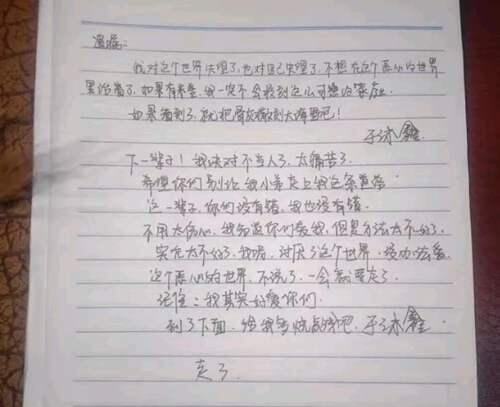 遗嘱:
我对这个世界失望了,也对自己失望了,不想在这个恶心的世界
里活着了,如果有来生,我一定不会投到这么可悲的家庭
如果看到了,就把骨灰撒到大海里吧!
于沐鑫
下一辈子!我绝对不当人了,太痛苦了
希望你们别让我小弟走上我这条道路
这一辈子,你们没有错,我也没有错
不用太伤心,我知道你们爱我,但是方法太不好了
实在太不好了,我恨,讨厌了这个世界,没办法爱
这个恶心的世界,不说了,一会就要走了
记住:我其实好爱你们
到了下面,给我多烧点钱吧,于沐鑫
走了